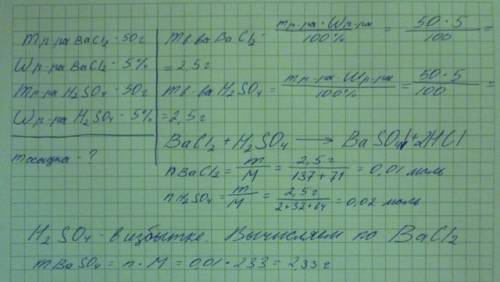 mр-ра BaCl₂ - 50г
Wр-ра BaCl₂ - 5%
mр-ра H₂SO₄ - 50г
Wр-ра H₂SO₄ - 5%
mосадка - ?
mв-ва BaCl₂ = mр-ра · Wр-ра / 100% = 50 · 5 / 100 =
= 2,5г
mв-ва H₂SO₄ = mр-ра · Wр-ра / 100% = 50 · 5 / 100 =
= 2,5г
BaCl₂ + H₂SO₄ → BaSO₄↓ + 2HCl
nBaCl₂ = m / M = 2,5г / 137+71 = 0,01 моль
nH₂SO₄ = m / M = 2,5г / 2+32+64 = 0,02 моль
H₂SO₄ - в избытке. Вычисляем по BaCl₂
mBaSO₄ = n · M = 0,01 · 233 = 2,33г